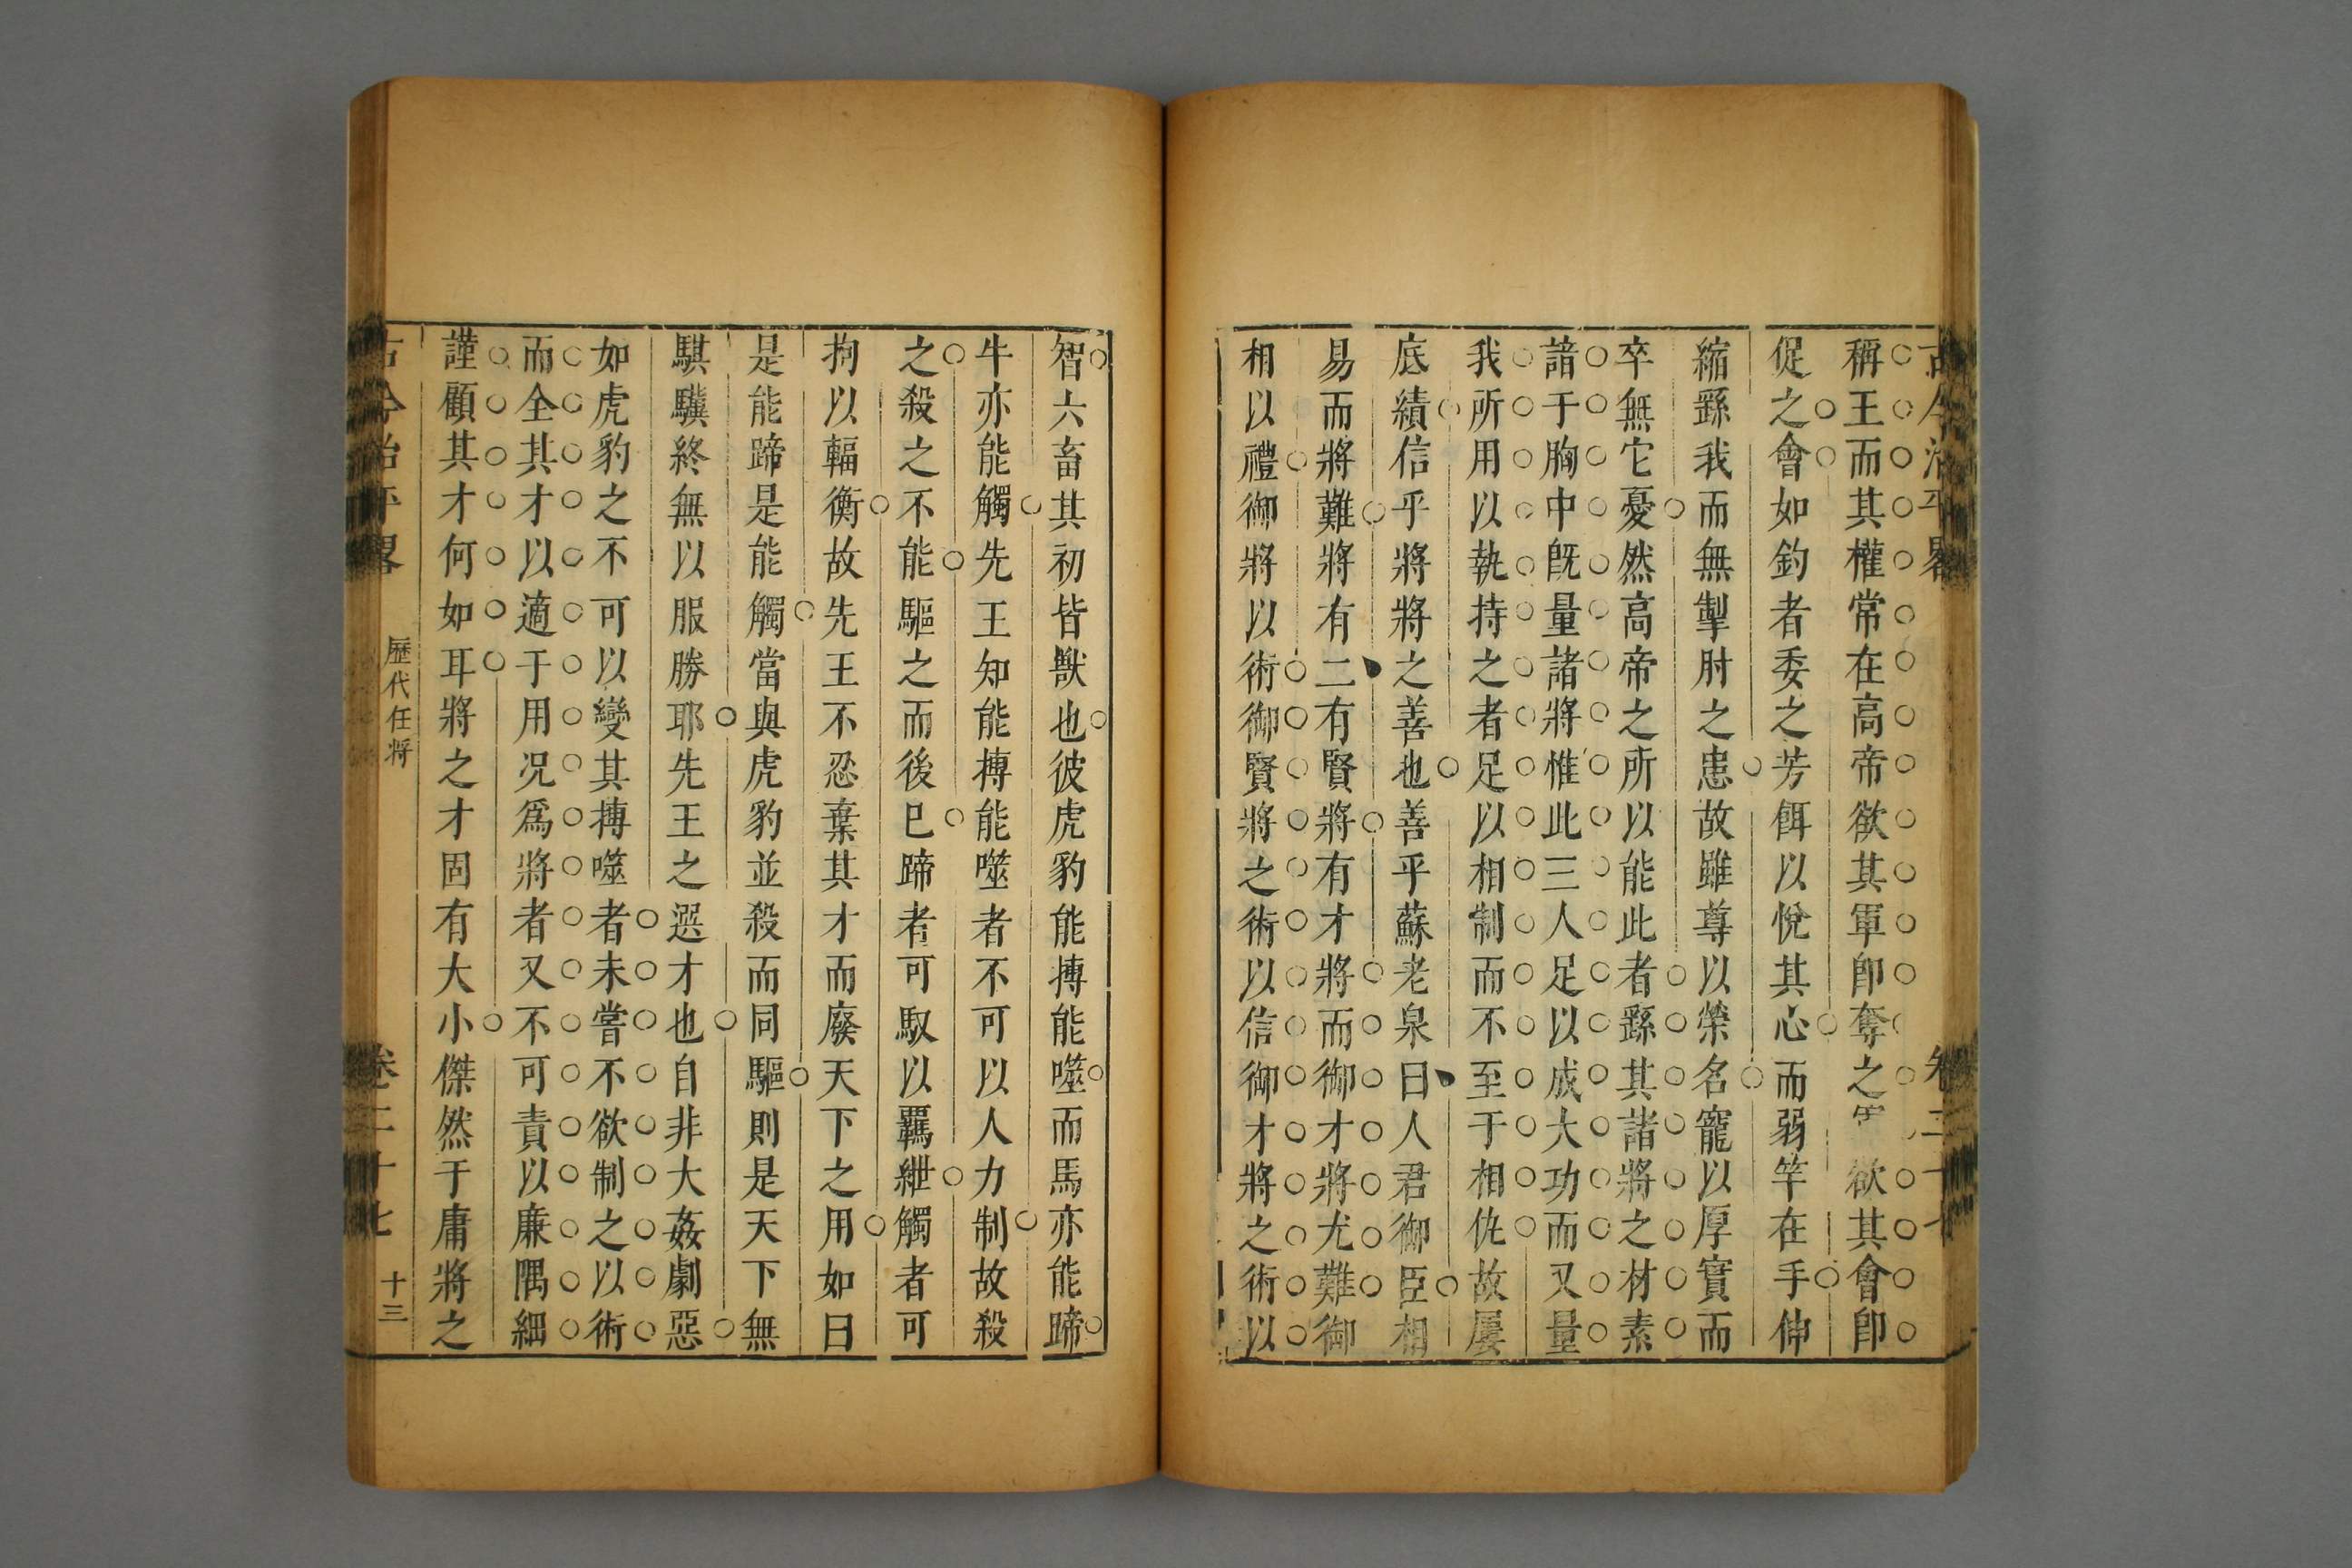 古今治平畧 卷二十七
稱王而其權常在高帝欲其軍卽奪之 欲其會卽
促之會如釣者委之芳餌以悅其心而弱竿在手伸
縮繇我而無掣肘之患故雖尊以榮名寵以厚實而
卒無它憂然高帝之所以能此者繇其諸將之材素
諳于胸中旣量諸將惟此三人足以成大功而又量
我所用以執持之者足以相制而不至于相仇故屢
底績信乎將將之善也善乎蘇老泉曰人君御臣相
易而將難將有二有賢將有才將而御才將尤難御
相以禮御將以術御賢將之術以信御才將之術以
智六畜其初皆獸也彼虎豹能搏能噬而馬亦能蹄
牛亦能觸先王知能搏能噬者不可以人力制故殺
之殺之不能驅之而後已蹄者可馭以羈紲觸者可
拘以輻衡故先王不忍棄其才而廢天下之用如曰
是能蹄是能觸當與虎豹並殺而同驅則是天下無
騏驥終無以服勝耶先王之選才也自非大姦劇惡
如虎豹之不可以變其搏噬者未嘗不欲制之以術
而全其才以適于用况爲將者又不可責以廉隅細
謹顧其才何如耳將之才固有大小傑然于庸將之
古今治平畧 歷代任將 卷二十七 十三